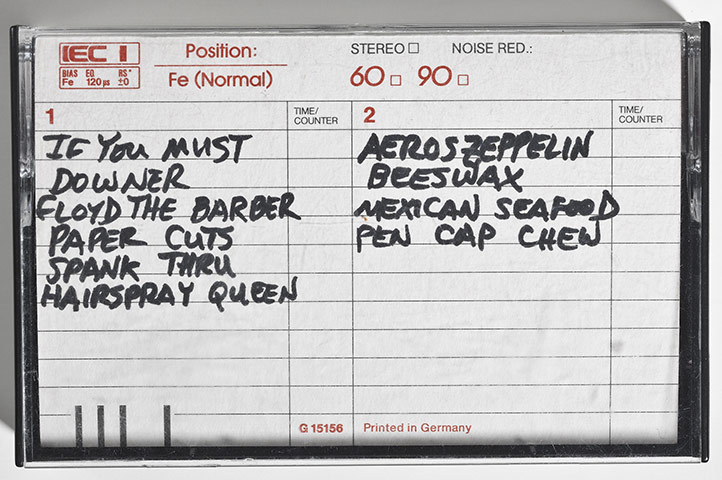 IEC I
BIAS EQ RS*
Fe 120 µs ±0
Position:
Fe (Normal)
STEREO □ NOISE RED.:
60 □ 90 □
1
TIME/
COUNTER
IF YOU MUST
DOWNER
FLOYD THE BARBER
PAPER CUTS
SPANK THRU
HAIRSPRAY QUEEN
G 15156
2
TIME/
COUNTER
AEROSZEPPELIN
BEESWAX
MEXICAN SEAFOOD
PEN CAP CHEW
Printed in Germany